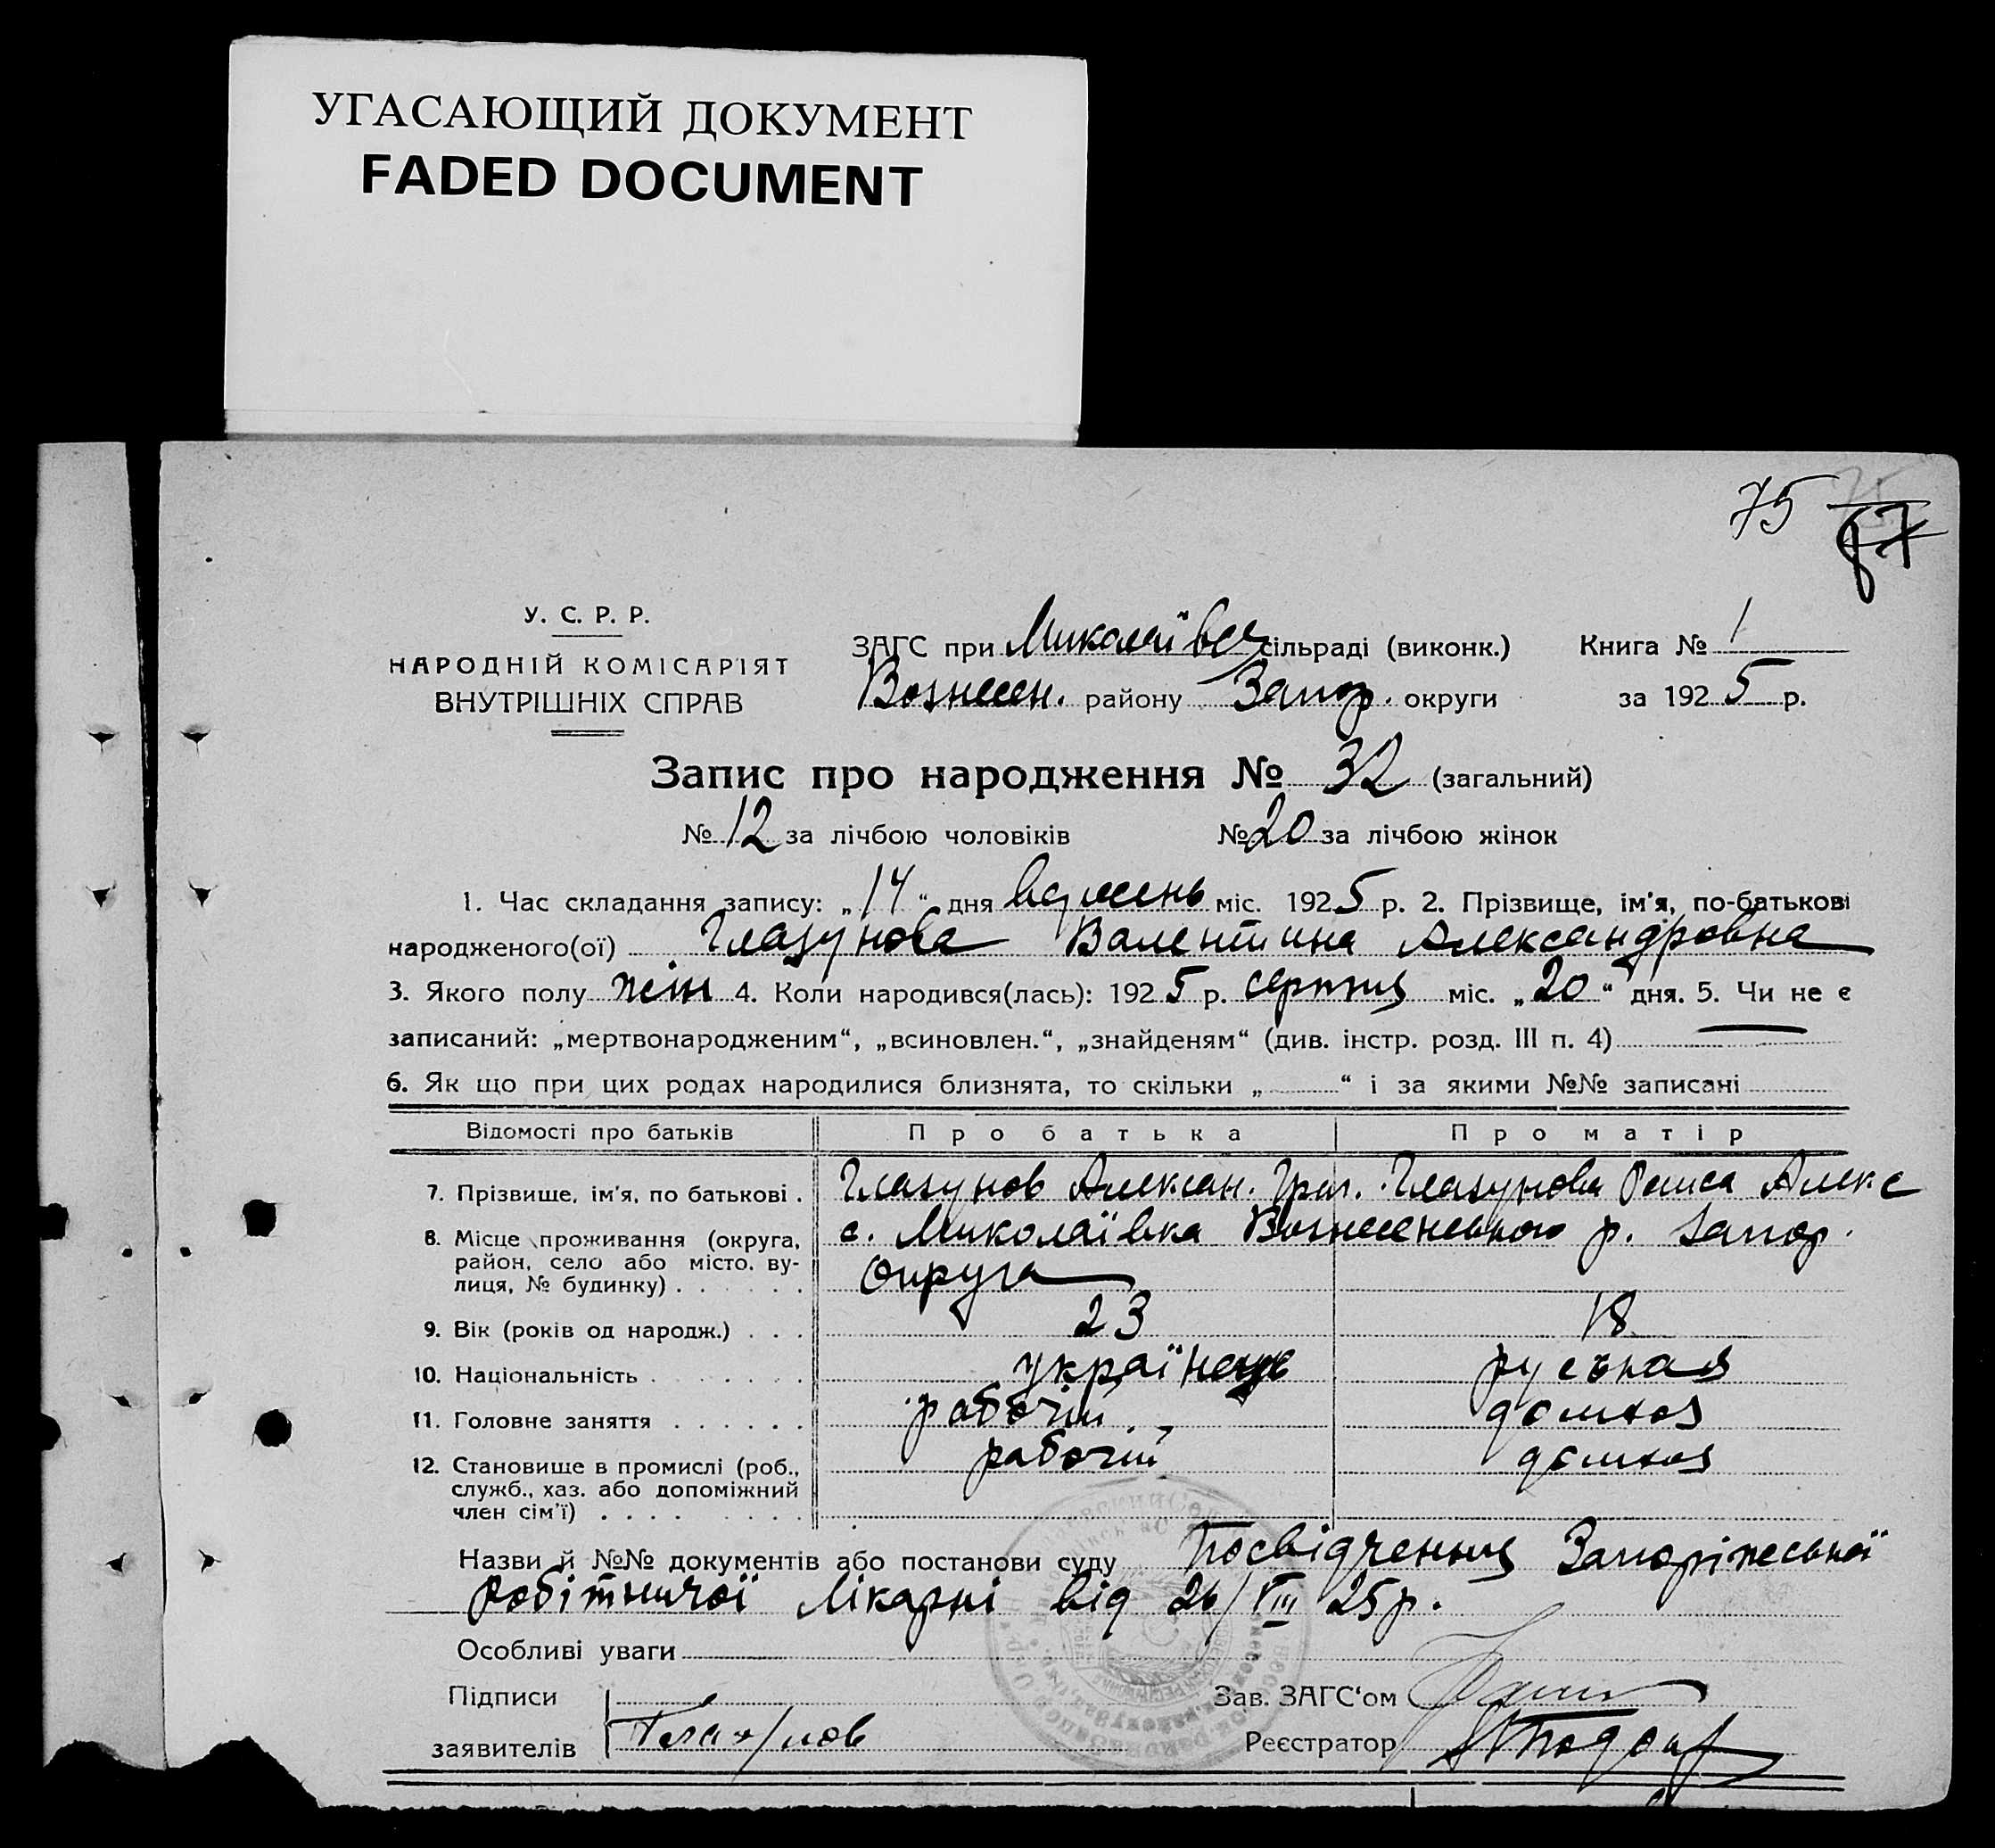 УГАСАЮЩИЙ ДОКУМЕНТ
FADED DOCUMENT
75 75
67
У. С. Р. Р.
НАРОДНІЙ КОМІСАРІЯТ
ВНУТРІШНІХ СПРАВ
ЗАГС при Миколаївс сільраді (виконк.) Книга № 1
Вознесен. району Запор. округи за 1925 р.
Запис про народження № 32 (загальний)
№ 12 за лічбою чоловіків № 20 за лічбою жінок
1. Час складання запису: „14“ дня вересень міс. 1925 р. 2. Прізвище, ім'я, по-батькові
народженого(ої) Глазунова Валентина Александровна
3. Якого полу жін 4. Коли народився(лась): 1925 р. серпня міс. „20“ дня. 5. Чи не є
записаний: „мертвонародженим“, „всиновлен.“, „знайденям“ (див. інстр. розд. III п. 4) —
6. Як що при цих родах народилися близнята, то скільки „ “ і за якими №№ записані
Відомості про батьків Про батька Про матір
7. Прізвище, ім'я, по батькові . Глазунов Алексан. Григ. Глазунова Раиса Алекс
8. Місце проживання (округа, район, село або місто, вулиця, № будинку) . с. Миколаївка Вознесенського р. Запор.
Округа
9. Вік (років од народж.) . . . 23 18
10. Національність . українець руськая
11. Головне заняття . робочій домхоз
12. Становище в промислі (роб., служб., хаз. або допоміжний член сім'ї) рабочій домхоз
Назви й №№ документів або постанови суду Посвідчення Запоріжеської
Робітничої Лікарні від 26/VIII 25р.
Особливі уваги
Підписи Зав. ЗАГС'ом
заявителів Глазунов Реєстратор